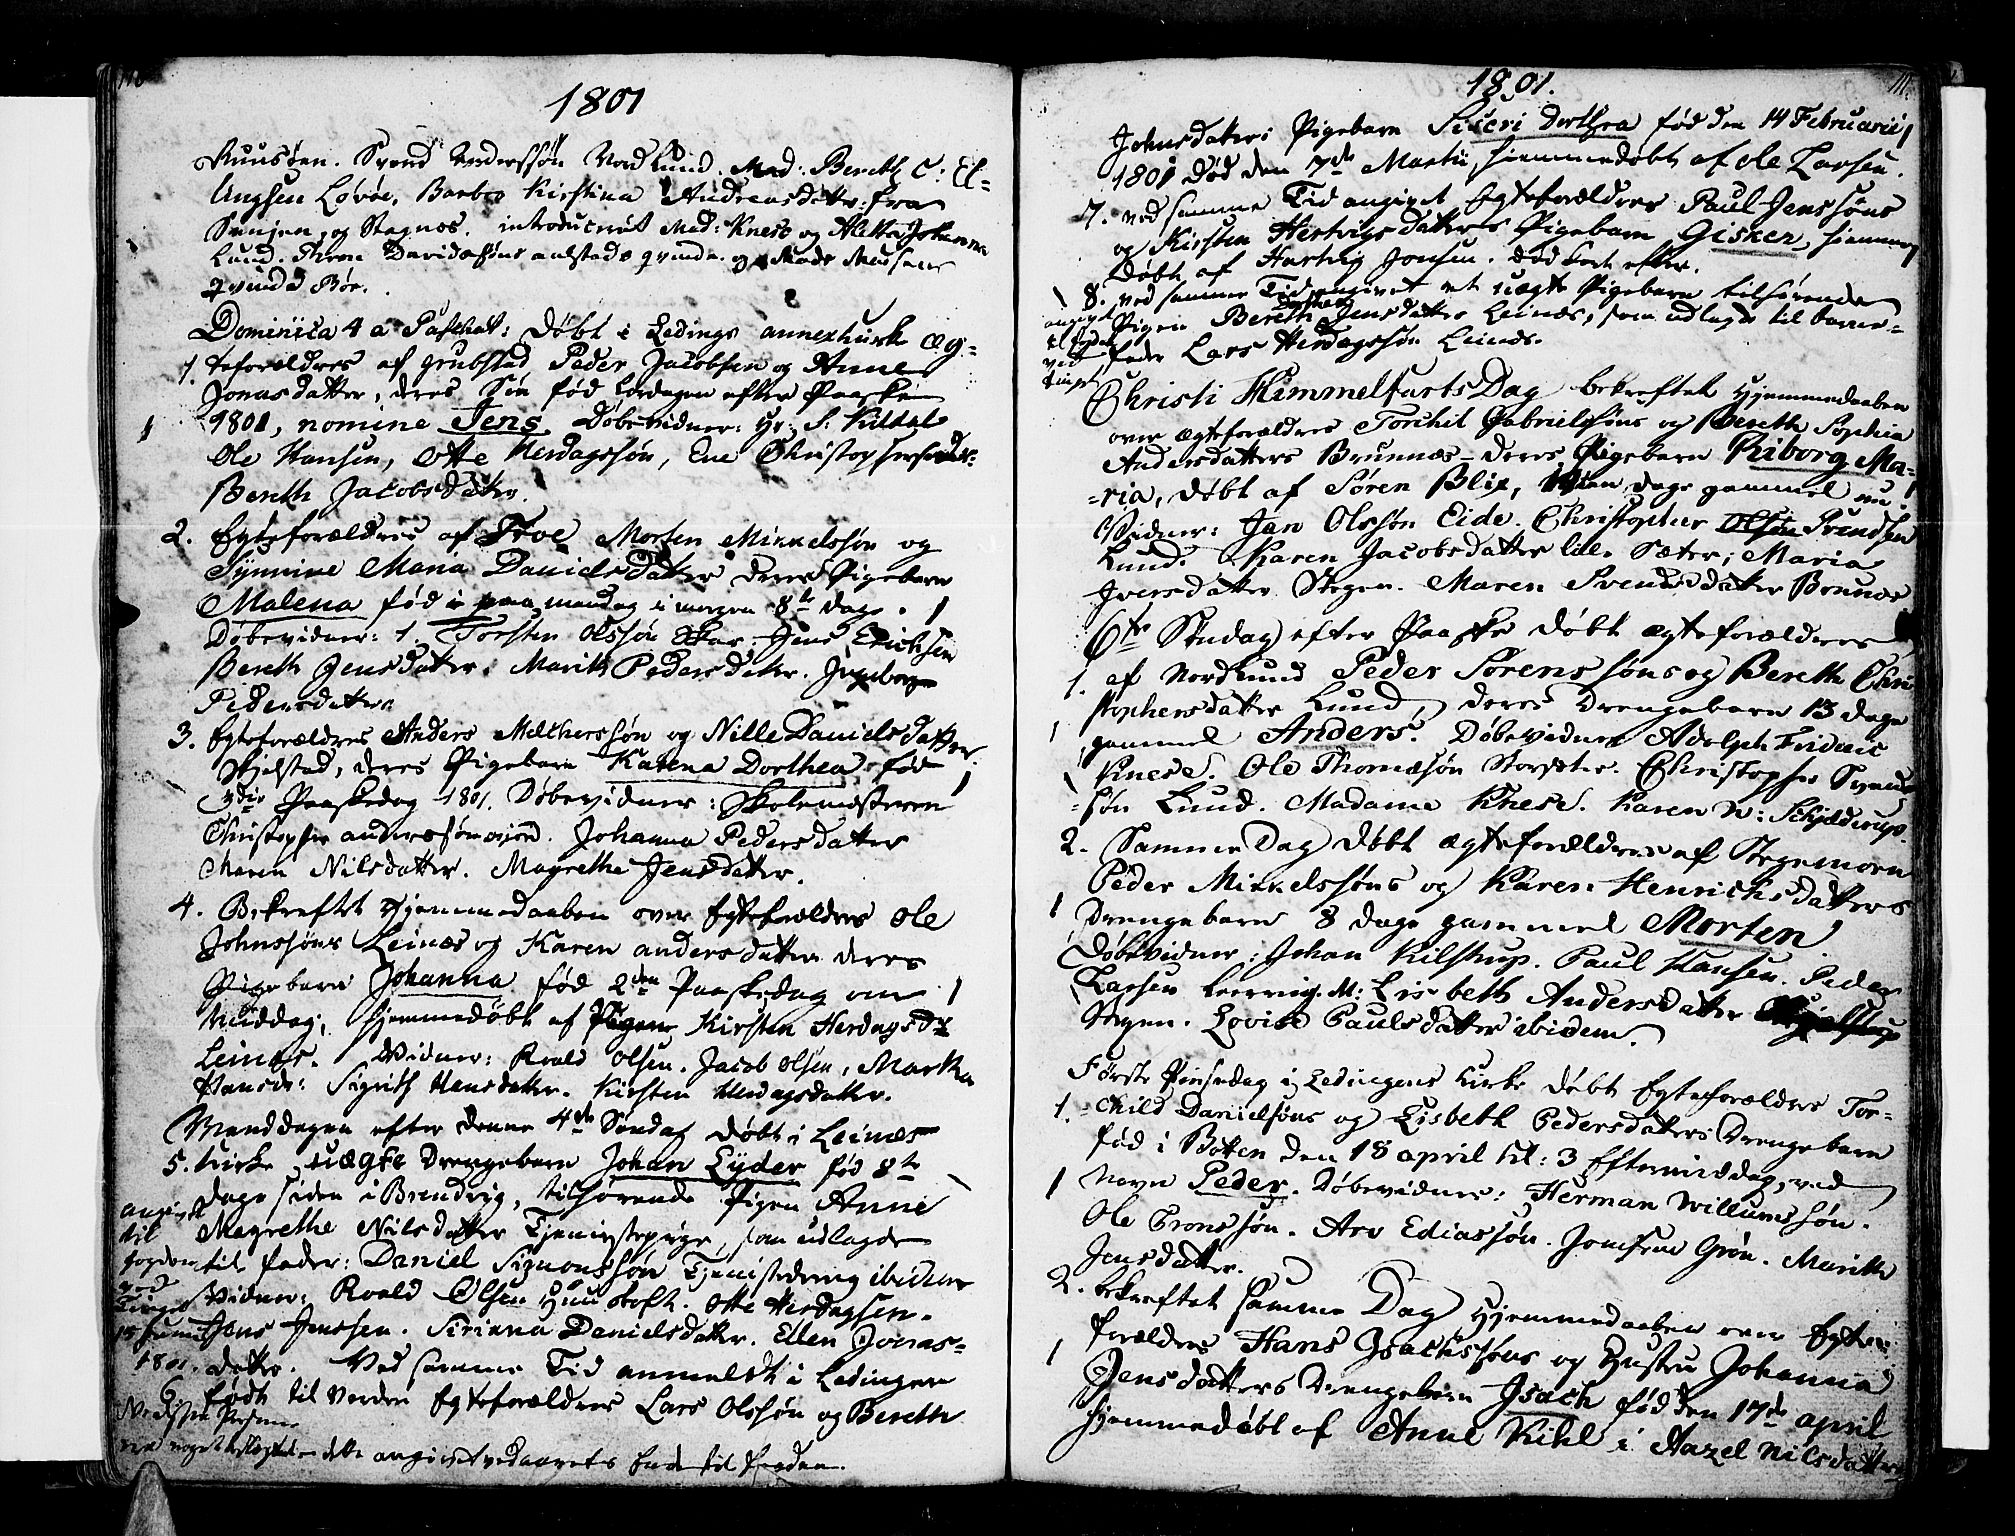 1801
Svend Anderssøn Nordlund. Mad: Bereth C: El-
lingsen Løvøe, Barbro Kirstina Andreasdatter fra
Senjen og Stegnæs. introducerit Mad: Knese og Aletta Johanna
Lund.
Qvinde Bøe.
Dominica 4 a Paschat: Døbt i Lødings annexkirke æg-
1. teforældres af Grubstad Peder Jacobsen og Anne
Jonasdatter, deres Søn fød Lørdagen efter Paaske
1801, nomine Jens. Døbevidner: Hr: S: Kildal
Ole Hansen, Otte Herdagssøn,
Bereth Jacobsdatter.
2. Egteforældres af Morten Mikkelssøn og
Synnive Mana Danielsdatter deres Pigebarn
Malena fød paa mandag i morgen 8te dage.
Døbevidner: 1. Torsten Olssøn Jens Erichsen
Bereth Jensdatter. Marith Pedersdatter. Ingeborg
Pedersdatter
3. Egteforældres Anders Melcherssøn og Nille Danielsdatter
deres Pigebarn Karena Dorthea fød
3die Paaskedag 1801. Døbevidner: Skolemesteren
Christopher Johanna Pedersdatter
Maren Nilsdatter. Magrethe Jensdatter.
4. Bekreftet Hjemmedaaben over Egteforældres Ole
Johnssøns Leinæs og Karen Andersdatter deres
Pigebarn Johanna fød 2den Paaskedag om
Middag, hjemmedøbt af Pigen Kirsten Herdagsdr
Leinæs. Vidner: Roald Olsen. Jacob Olsen, Martha
Hansdr: Sigrith Hansdatter. Kirsten Herdagsdatter.
Manddagen efter denne 4de Søndag døbt i Leinæs
5. Kirke uægte Drengebarn Johan Eyder fød 8te
dage siden i Brendvig, tilhørende Pigen Anne
Magrethe Nilsdatter Tjenistepige, som udlagde
til Fader: Daniel Simonssøn Tjenistedreng ibidem
Vidner: Roald Olsen Otte Herdagsen.
Jens Jenssen. Sirianna Danielsdatter. Ellen Jonas-
datter. Ved samme Tid anmeldt i Lødingen
6. født til Verden Egteforældres Lars Olssøn og Bereth
angivet
til
fogden
ved
Tinget
15 Junii
1801.
1801.
111.
Johnsdatters Pigebarn Siseri Dorthea fød den 14 Februarii
1801 død den 7de Martii, hjemmedøbt af Ole Larsen.
7. ved samme Tid angivet Egteforældres Paul Jenssøns
og Kirsten Hertvigsdatters Pigebarn Gisken, hjemme
døbt af Hartvig Jonsen. død kort efter.
8. ved samme Tid angivet et uægte Pigebarn tilhørende
Pigen Bereth Jensdatter Leinæs, som udlagde til barne-
fader Lars Herdagssøn Leinæs.
angivet
til fogden
ved
Tinget
Christi Himmelfarts Dag bekreftet Hjemmedaaben
over ægteforældres Torchil Gabrielssøns og Bereth Sophia
Andersdatters Brunnæs deres Pigebarn Riborg Ma-
-ria, døbt af Søren Blix, dage gammel
Vidner: Jan Olssøn Eide. Christopher Trundsen
Lund. Karen Jacobsdatter lille Sæter, Maria
Iversdatter Stegen. Maren Svendsdatter Brunæs
6te Søndag efter Paaske døbt ægteforældres
1. af Nordlund Peder Sørenssøns og Bereth Chri
stophersdatter Lund, deres Drengebarn 13 dage
gammel Anders. Døbevidner Adolph Fridric
Knese. Ole Thomæsøn Storsæter. Christopher Svend-
-søn Lund. Madame Knese. Karen N: Schjelderup.
2. Samme Dag døbt ægteforældres af Stegemoen
Peder Mikkelssøns og Karen Henrichsdatters
Drengebarn 8 dage gammel Morten
Døbevidner: Johan Kilstrup. Paul Hansen. Peder
Larsen M: Lisbeth Andersdatter
Stegen. Lovise Paulsdatter ibidem.
Første Pinsedag i Lødingens Kirke døbt Egteforældres Tor-
1. -child Danielsøns og Lisbeth Pedersdatters Drengebarn
fød i Botten den 18 april kl: 3 Eftermiddag, ved
Navn Peder. Døbevidner: Herman Willumssøn.
Ole Tronssøn. Arv Ediassøn. Jomfrue Grøn. Marith
Jensdatter.
2. bekreftet samme Dag Hjemmedaaben over Egte-
forældres Hans Isachssøns og Hustru Johanna
Jensdatters Drengebarn Isach fød den 17de april
hjemmedøbt af Anne Kihl i Hazel Nilsdatter